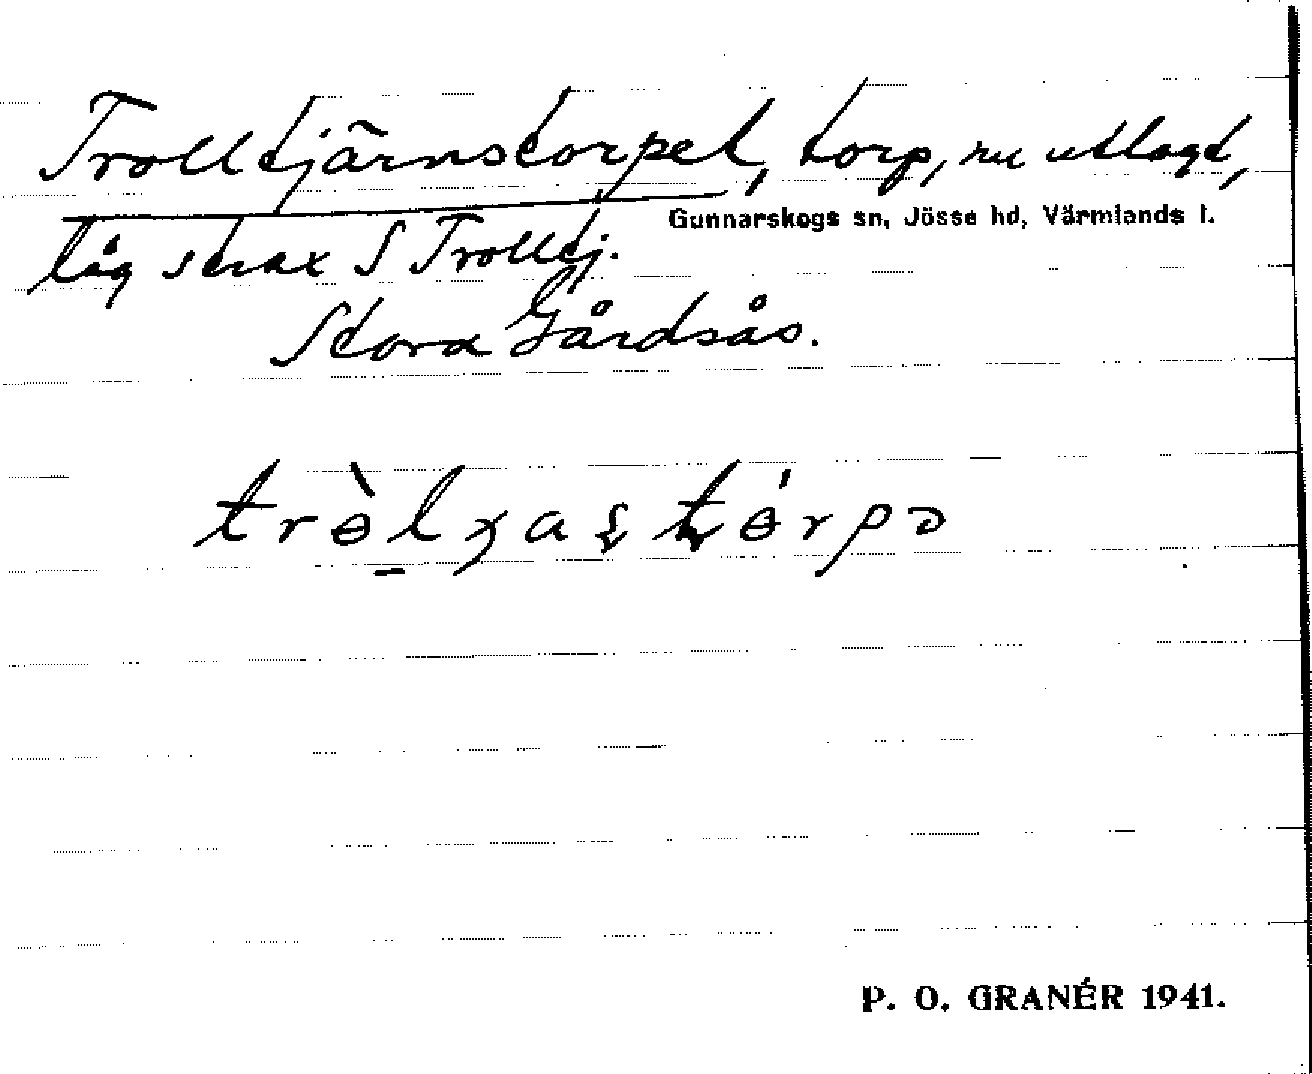 Trolltjärnstorpet, torp, nu utlagt,
Gunnarskogs sn, Jösse hd, Värmlands l.
låg strax S Trolltj.
Stora Gårdsås.
P. O. GRANÉR 1941.